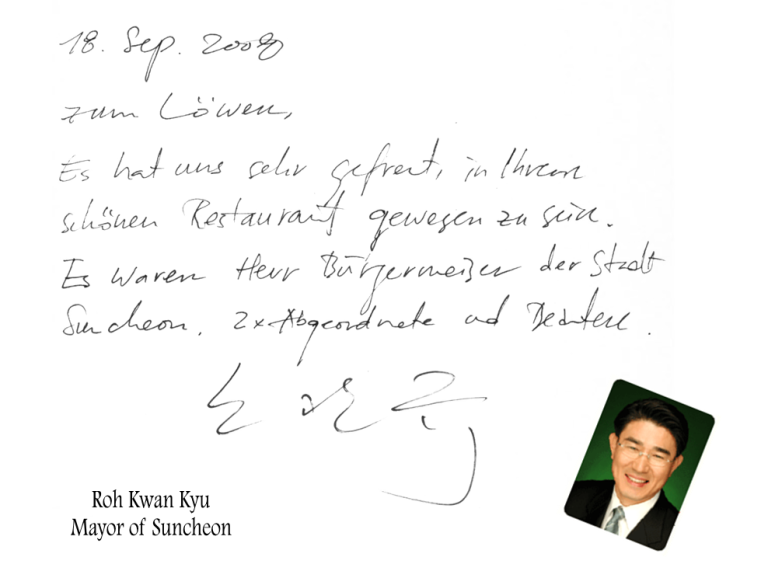 18. Sep. 2008
zum Löwen,
Es hat uns sehr gefreut, in Ihrem
schönen Restaurant gewesen zu sein.
Es waren Herr Bürgermeister der Stadt
Suncheon, 2x Abgeordnete und Beamten.
노관규
Roh Kwan Kyu
Mayor of Suncheon